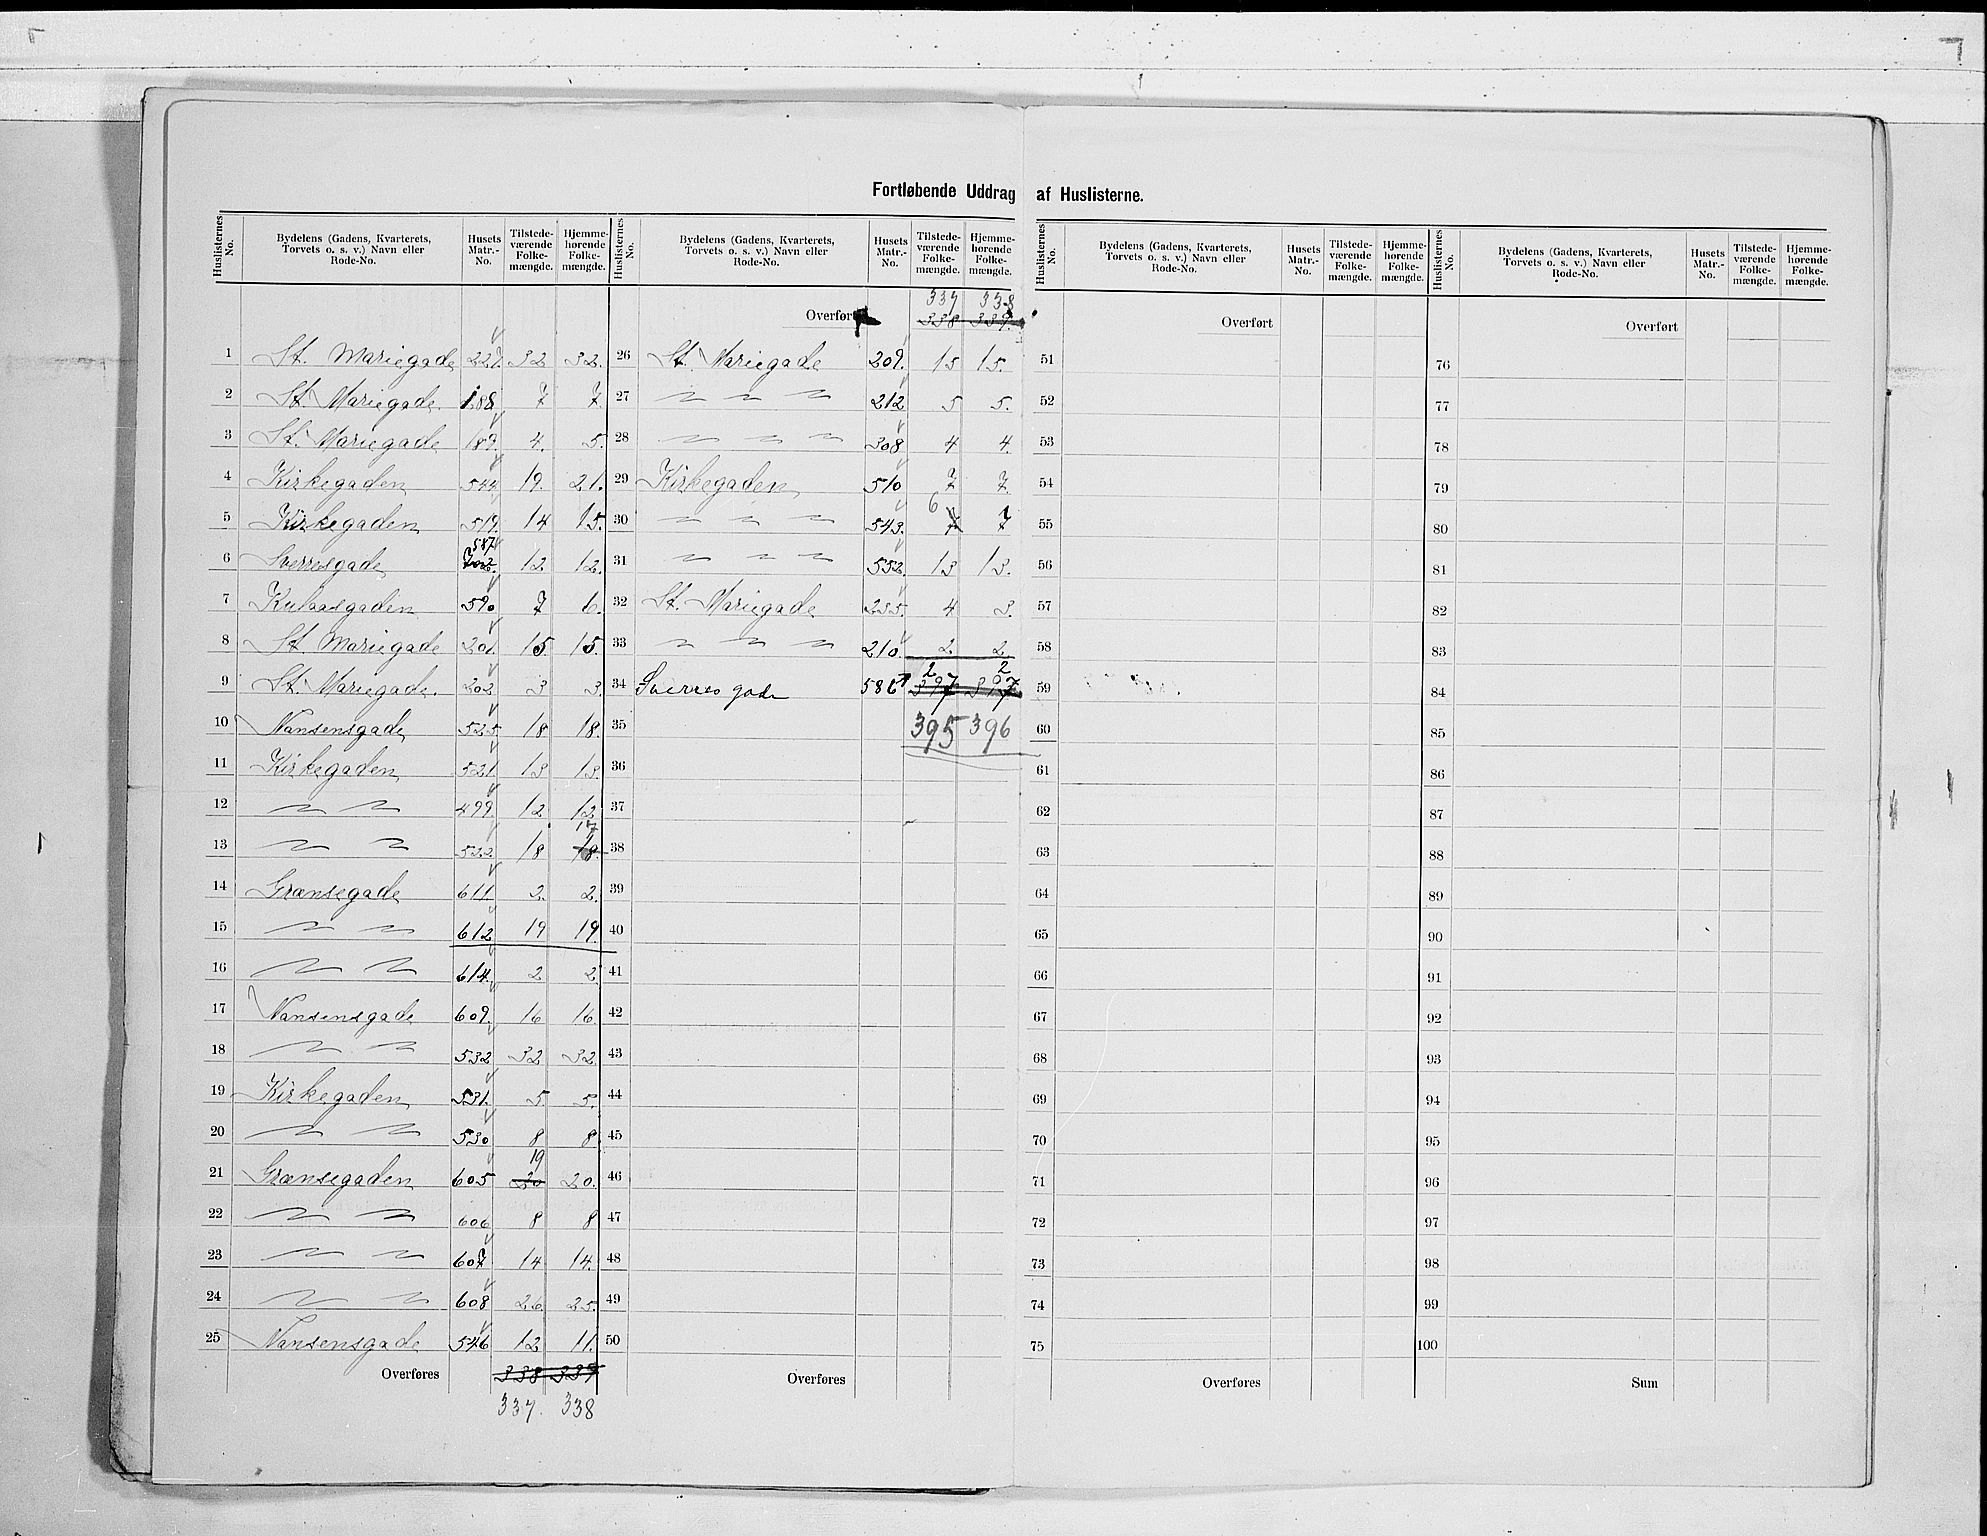 Fortløbende Uddrag af Huslisterne.
Huslisternes No. Bydelens (Gadens, Kvarterets, Torvets o. s. v.) Navn eller Rode-No. Husets Matr.-No. Tilstede-værende Folke-mængde. Hjemme-hørende Folke-mængde.
1 St. Mariegade 227. 32 32.
2 St. Mariegade. 188. 7 7.
3 St. Mariegade 189. 4. 5.
4 Kirkegaden 544. 19. 21.
5 Kirkegaden 519. 14 15.
6 Sverresgade 587 702. 12. 12.
7 Kulaasgaden 590 7 6.
8 St. Mariegade 201. 15. 15.
9 St. Mariegade. 202. 3 3.
10 Nansensgade 525. 18 18.
11 Kirkegaden 521. 13 13.
12 — — 499. 12 12.
13 — — 522. 18 17 18.
14 Grænsegade 611. 2. 2.
15 — — 612 19 19.
16 — — 614. 2 2.
17 Nansensgade 609. 16 16.
18 — — 532 32 32.
19 Kirkegaden 531. 5 5.
20 — — 530 8 8.
21 Grænsegaden 605 19 20 20.
22 — — 606 8 8
23 — — 607 14 14.
24 — — 608 26. 25.
25 Nansensgade 546 12 11.
Overføres 338 339
337. 338
Huslisternes No. Bydelens (Gadens, Kvarterets, Torvets o. s. v.) Navn eller Rode-No. Husets Matr.-No. Tilstede-værende Folke-mængde. Hjemme-hørende Folke-mængde.
337 338
Overført 338 339.
26 St. Mariegade 209. 15 15.
27 — — — 212 5 5.
28 — — — 308 4 4.
29 Kirkegaden 510 7 7.
30 — — — 543. 6 7 7
31 — — — 552. 13 13.
32 St. Mariegade 235. 4 3.
33 — — — 210. 2. 2.
34 Sverres gade 586 2 397 2 397
35 395 396
36
37
38
39
40
41
42
43
44
45
46
47
48
49
50
Overføres
Huslisternes No. Bydelens (Gadens, Kvarterets, Torvets o. s. v.) Navn eller Rode-No. Husets Matr.-No. Tilstede-værende Folke-mængde. Hjemme-hørende Folke-mængde.
Overført
51
52
53
54
55
56
57
58
59
60
61
62
63
64
65
66
67
68
69
70
71
72
73
74
75
Overføres
Huslisternes No. Bydelens (Gadens, Kvarterets, Torvets o. s. v.) Navn eller Rode-No. Husets Matr.-No. Tilstede-værende Folke-mængde. Hjemme-hørende Folke-mængde.
Overført
76
77
78
79
80
81
82
83
84
85
86
87
88
89
90
91
92
93
94
95
96
97
98
99
100
Sum